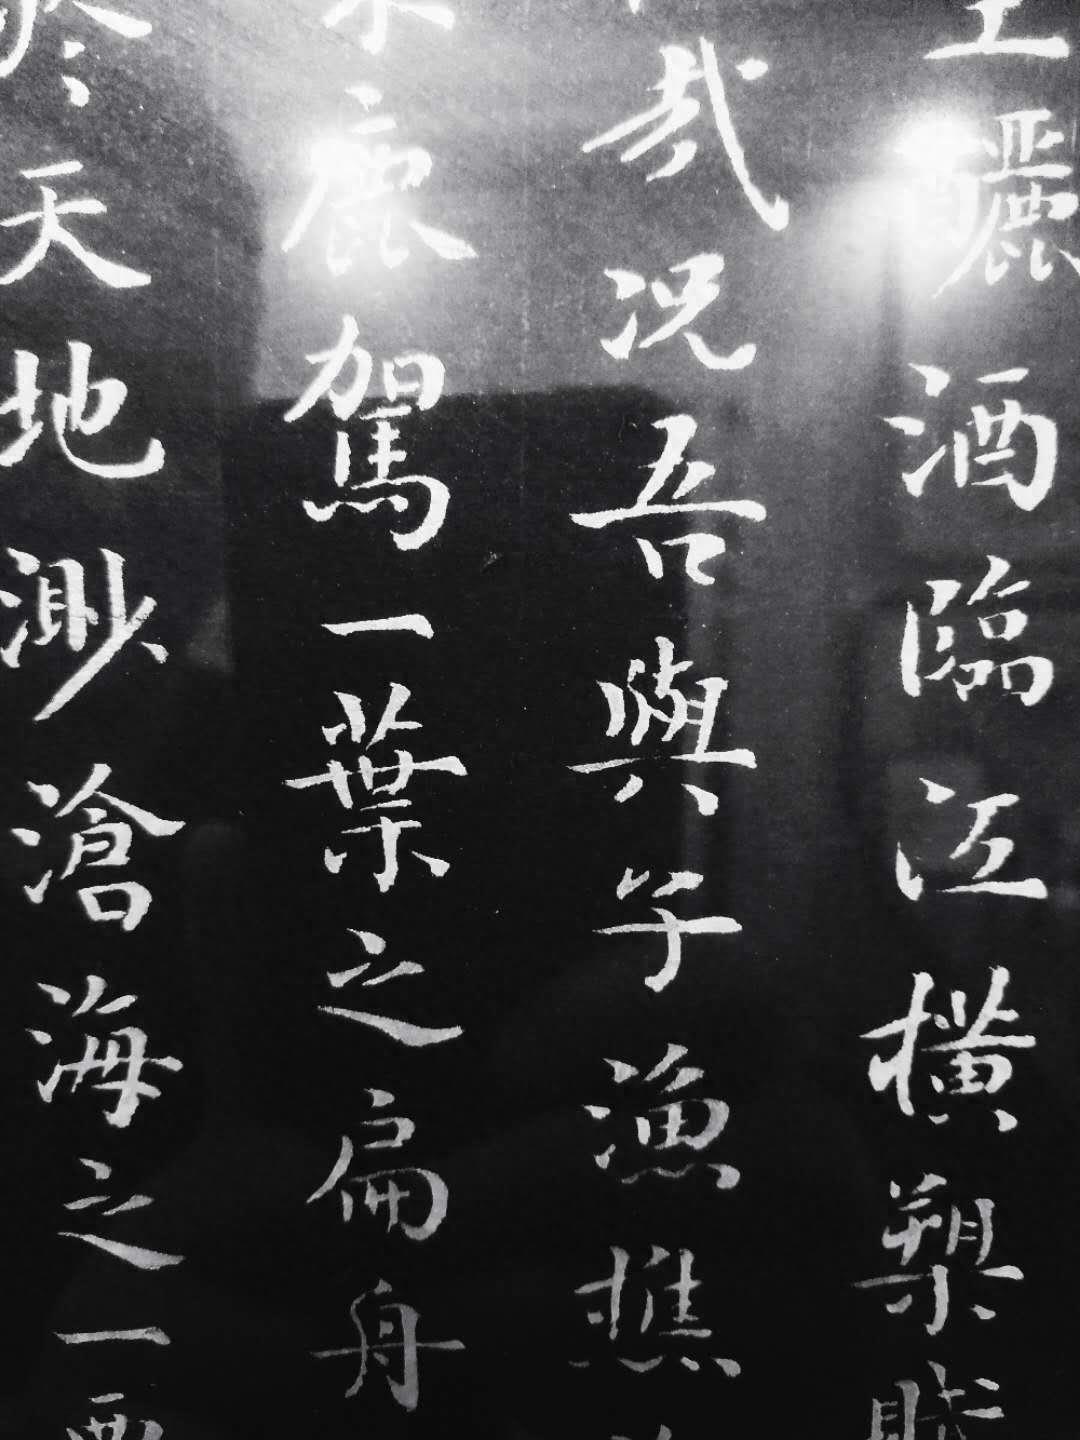 空釃酒臨江橫槊賦
哉况吾與子漁樵
麋鹿駕一葉之扁舟
於天地渺滄海之一粟